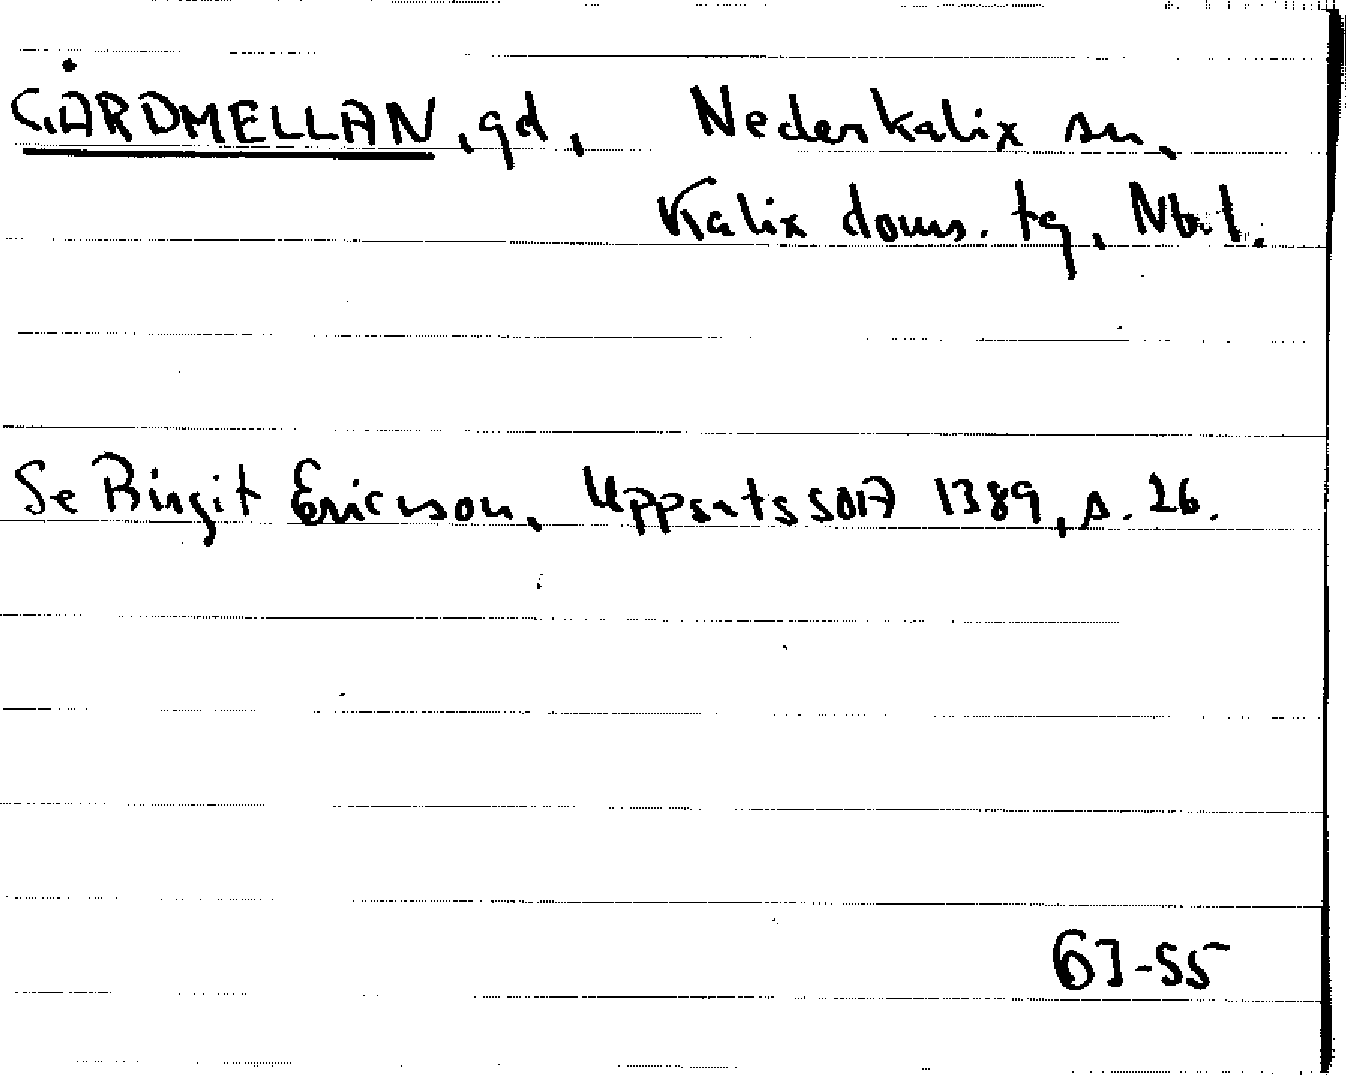 GÅRDMELLAN, gd, Nederkalix sn,
Kalix doms. tg, Nb. l.
Se Birgit Ericson, Uppsats SOIA 1389, s. 26.
67-55